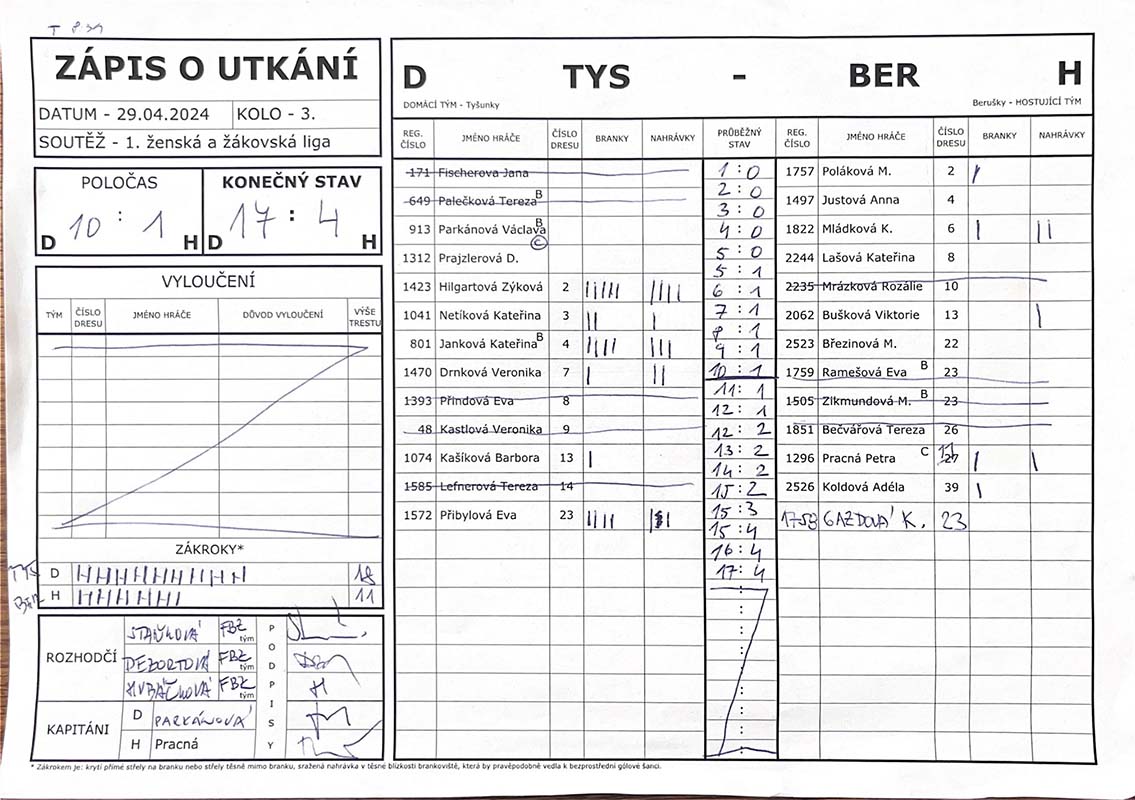 T 8 39
ZÁPIS O UTKÁNÍ
DATUM - 29.04.2024 KOLO - 3.
SOUTĚŽ - 1. ženská a žákovská liga
POLOČAS KONEČNÝ STAV
10 : 1 17 : 4
D H D H
VYLOUČENÍ
TÝM ČÍSLO DRESU JMÉNO HRÁČE DŮVOD VYLOUČENÍ VÝŠE TRESTU
ZÁKROKY*
TYS D 18
BER H 11
ROZHODČÍ PODPISY
STAŇKOVÁ FBŽ tým
DEZORTOVÁ FBŽ tým
HUBÁČKOVÁ FBŽ tým
KAPITÁNI
D PARKÁNOVÁ
H Pracná
D TYS - BER H
DOMÁCÍ TÝM - Tyšunky Berušky - HOSTUJÍCÍ TÝM
REG. ČÍSLO JMÉNO HRÁČE ČÍSLO DRESU BRANKY NAHRÁVKY PRŮBĚŽNÝ STAV REG. ČÍSLO JMÉNO HRÁČE ČÍSLO DRESU BRANKY NAHRÁVKY
171 Fischerova Jana
649 Palečková Tereza B
913 Parkánová Václava B C
1312 Prajzlerová D.
1423 Hilgartová Zýková 2 IIIII IIII
1041 Netíková Kateřina 3 II I
801 Janková Kateřina B 4 IIII III
1470 Drnková Veronika 7 I II
1393 Přindová Eva 8
48 Kastlová Veronika 9
1074 Kašíková Barbora 13 I
1585 Lefnerová Tereza 14
1572 Přibylová Eva 23 IIII
1 : 0
2 : 0
3 : 0
4 : 0
5 : 0
5 : 1
6 : 1
7 : 1
8 : 1
9 : 1
10 : 1
11 : 1
12 : 1
12 : 2
13 : 2
14 : 2
15 : 2
15 : 3
15 : 4
16 : 4
17 : 4
:
:
:
:
:
:
1757 Poláková M. 2 I
1497 Justová Anna 4
1822 Mládková K. 6 I II
2244 Lašová Kateřina 8
2235 Mrázková Rozálie 10
2062 Bušková Viktorie 13 I
2523 Březinová M. 22
1759 Ramešová Eva B 23
1505 Zikmundová M. B 23
1851 Bečvářová Tereza 26
1296 Pracná Petra C 27 11 I I
2526 Koldová Adéla 39 I
1758 GAZDOVÁ K. 23
* Zákrokem je: krytí přímé střely na branku nebo střely těsně mimo branku, sražená nahrávka v těsné blízkosti brankoviště, která by pravěpodobně vedla k bezprostřední gólové šanci.